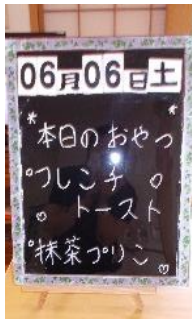 06月06日土
本日のおやつ
フレンチ
トースト
抹茶プリン